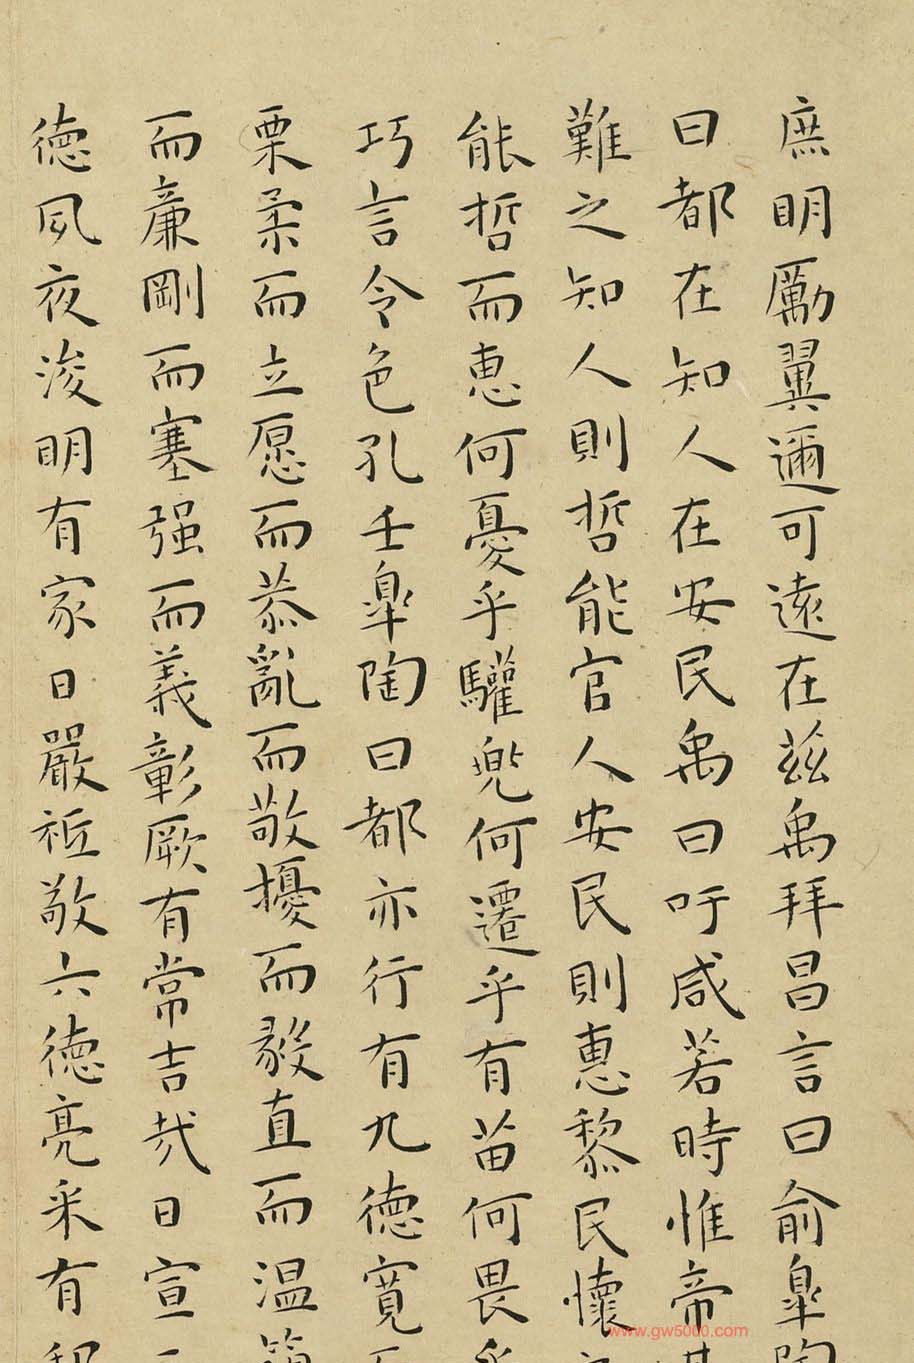 庶明厲翼邇可遠在茲禹拜昌言曰俞皐陶
曰都在知人在安民禹曰吁咸若時惟帝其
難之知人則哲能官人安民則惠黎民懷之
能哲而惠何憂乎驩兜何遷乎有苗何畏乎
巧言令色孔壬皐陶曰都亦行有九德寬而
栗柔而立愿而恭亂而敬擾而毅直而温簡
而廉剛而塞强而義彰厥有常吉哉日宣三
德夙夜浚明有家日嚴祗敬六德亮采有邦
www.gw5000.com